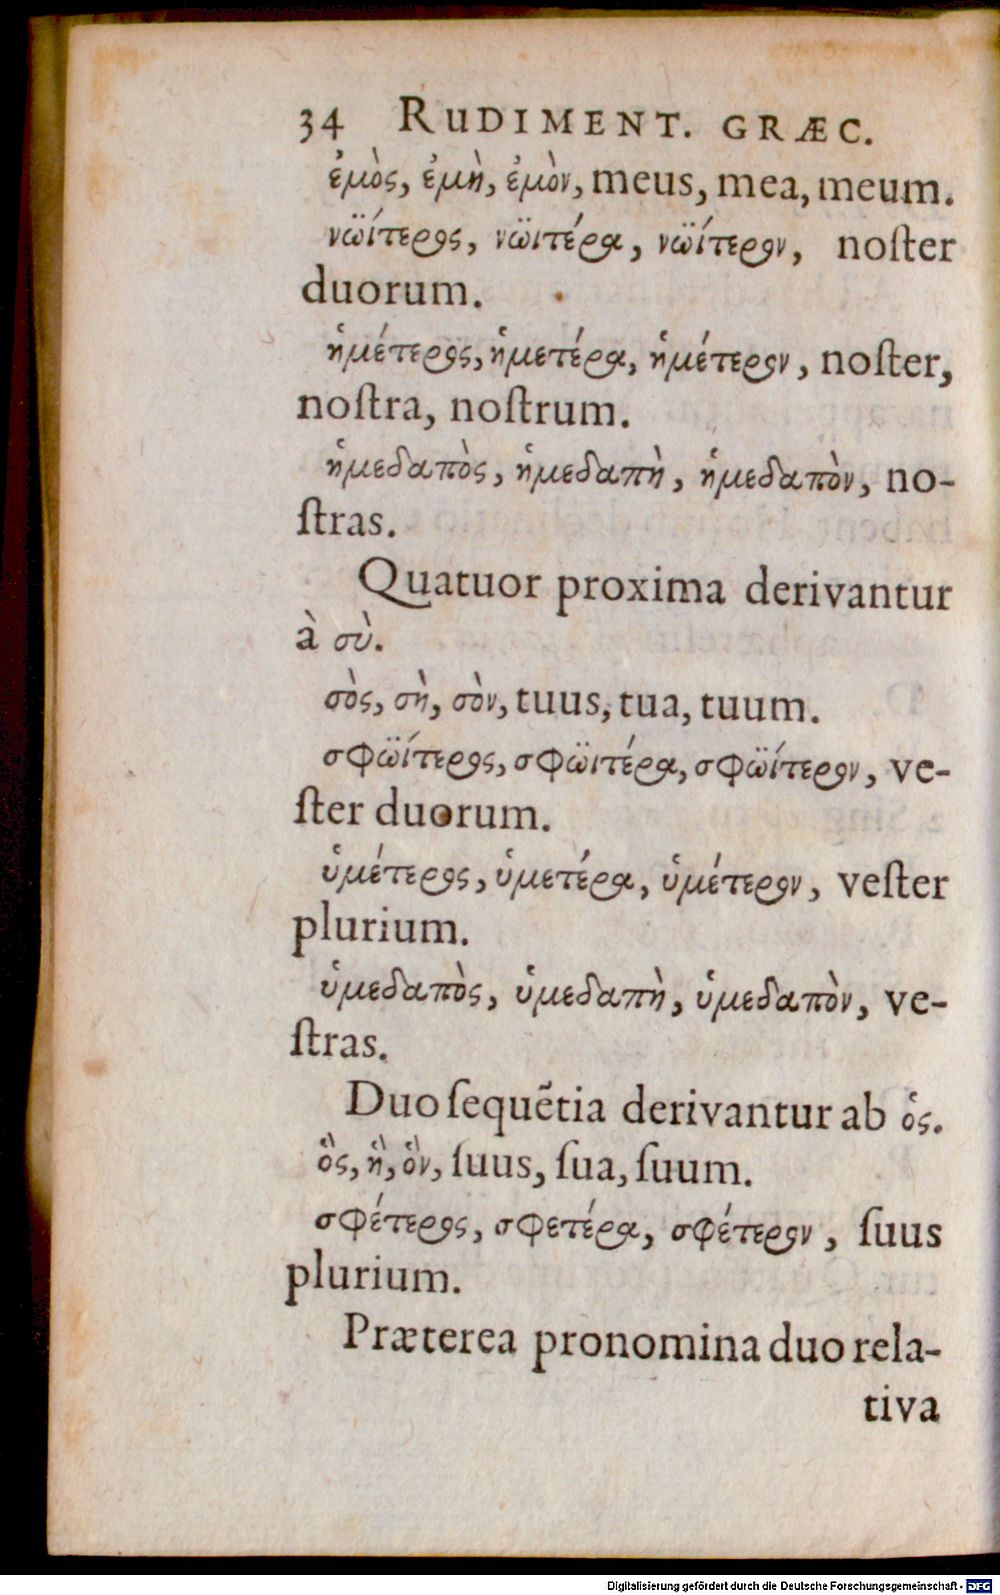 34 RUDIMENT. GRÆC.
ἐμὸς, ἐμὴ, ἐμὸν, meus, mea, meum.
νωΐτερος, νωϊτέρα, νωΐτερον, noſter
duorum.
ἡμέτερος, ἡμετέρα, ἡμέτερον, noſter,
noſtra, noſtrum.
ἡμεδαπὸς, ἡμεδαπὴ, ἡμεδαπὸν, no-
ſtras.
Quatuor proxima derivantur
à σὺ.
σὸς, σὴ, σὸν, tuus, tua, tuum.
σφωΐτερος, σφωϊτέρα, σφωΐτερον, ve-
ſter duorum.
ὑμέτερος, ὑμετέρα, ὑμέτερον, veſter
plurium.
ὑμεδαπὸς, ὑμεδαπὴ, ὑμεδαπὸν, ve-
ſtras.
Duo ſequẽtia derivantur ab ὁς.
ὃς, ἣ, ὃν, ſuus, ſua, ſuum.
σφέτερος, σφετέρα, σφέτερον, ſuus
plurium.
Præterea pronomina duo rela-
tiva
Digitalisierung gefördert durch die Deutsche Forschungsgemeinschaft - DFG